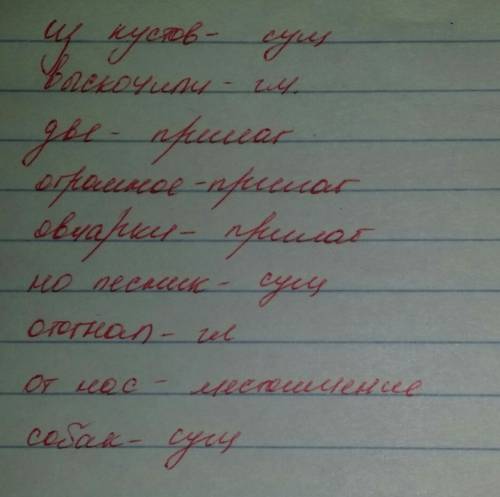 из кустов - сущ
выскочили - гл.
две - прилаг
огромное - прилаг
овчарки - прилаг
но лесник - сущ
отогнал - гл
от нас - местоимение
собак - сущ